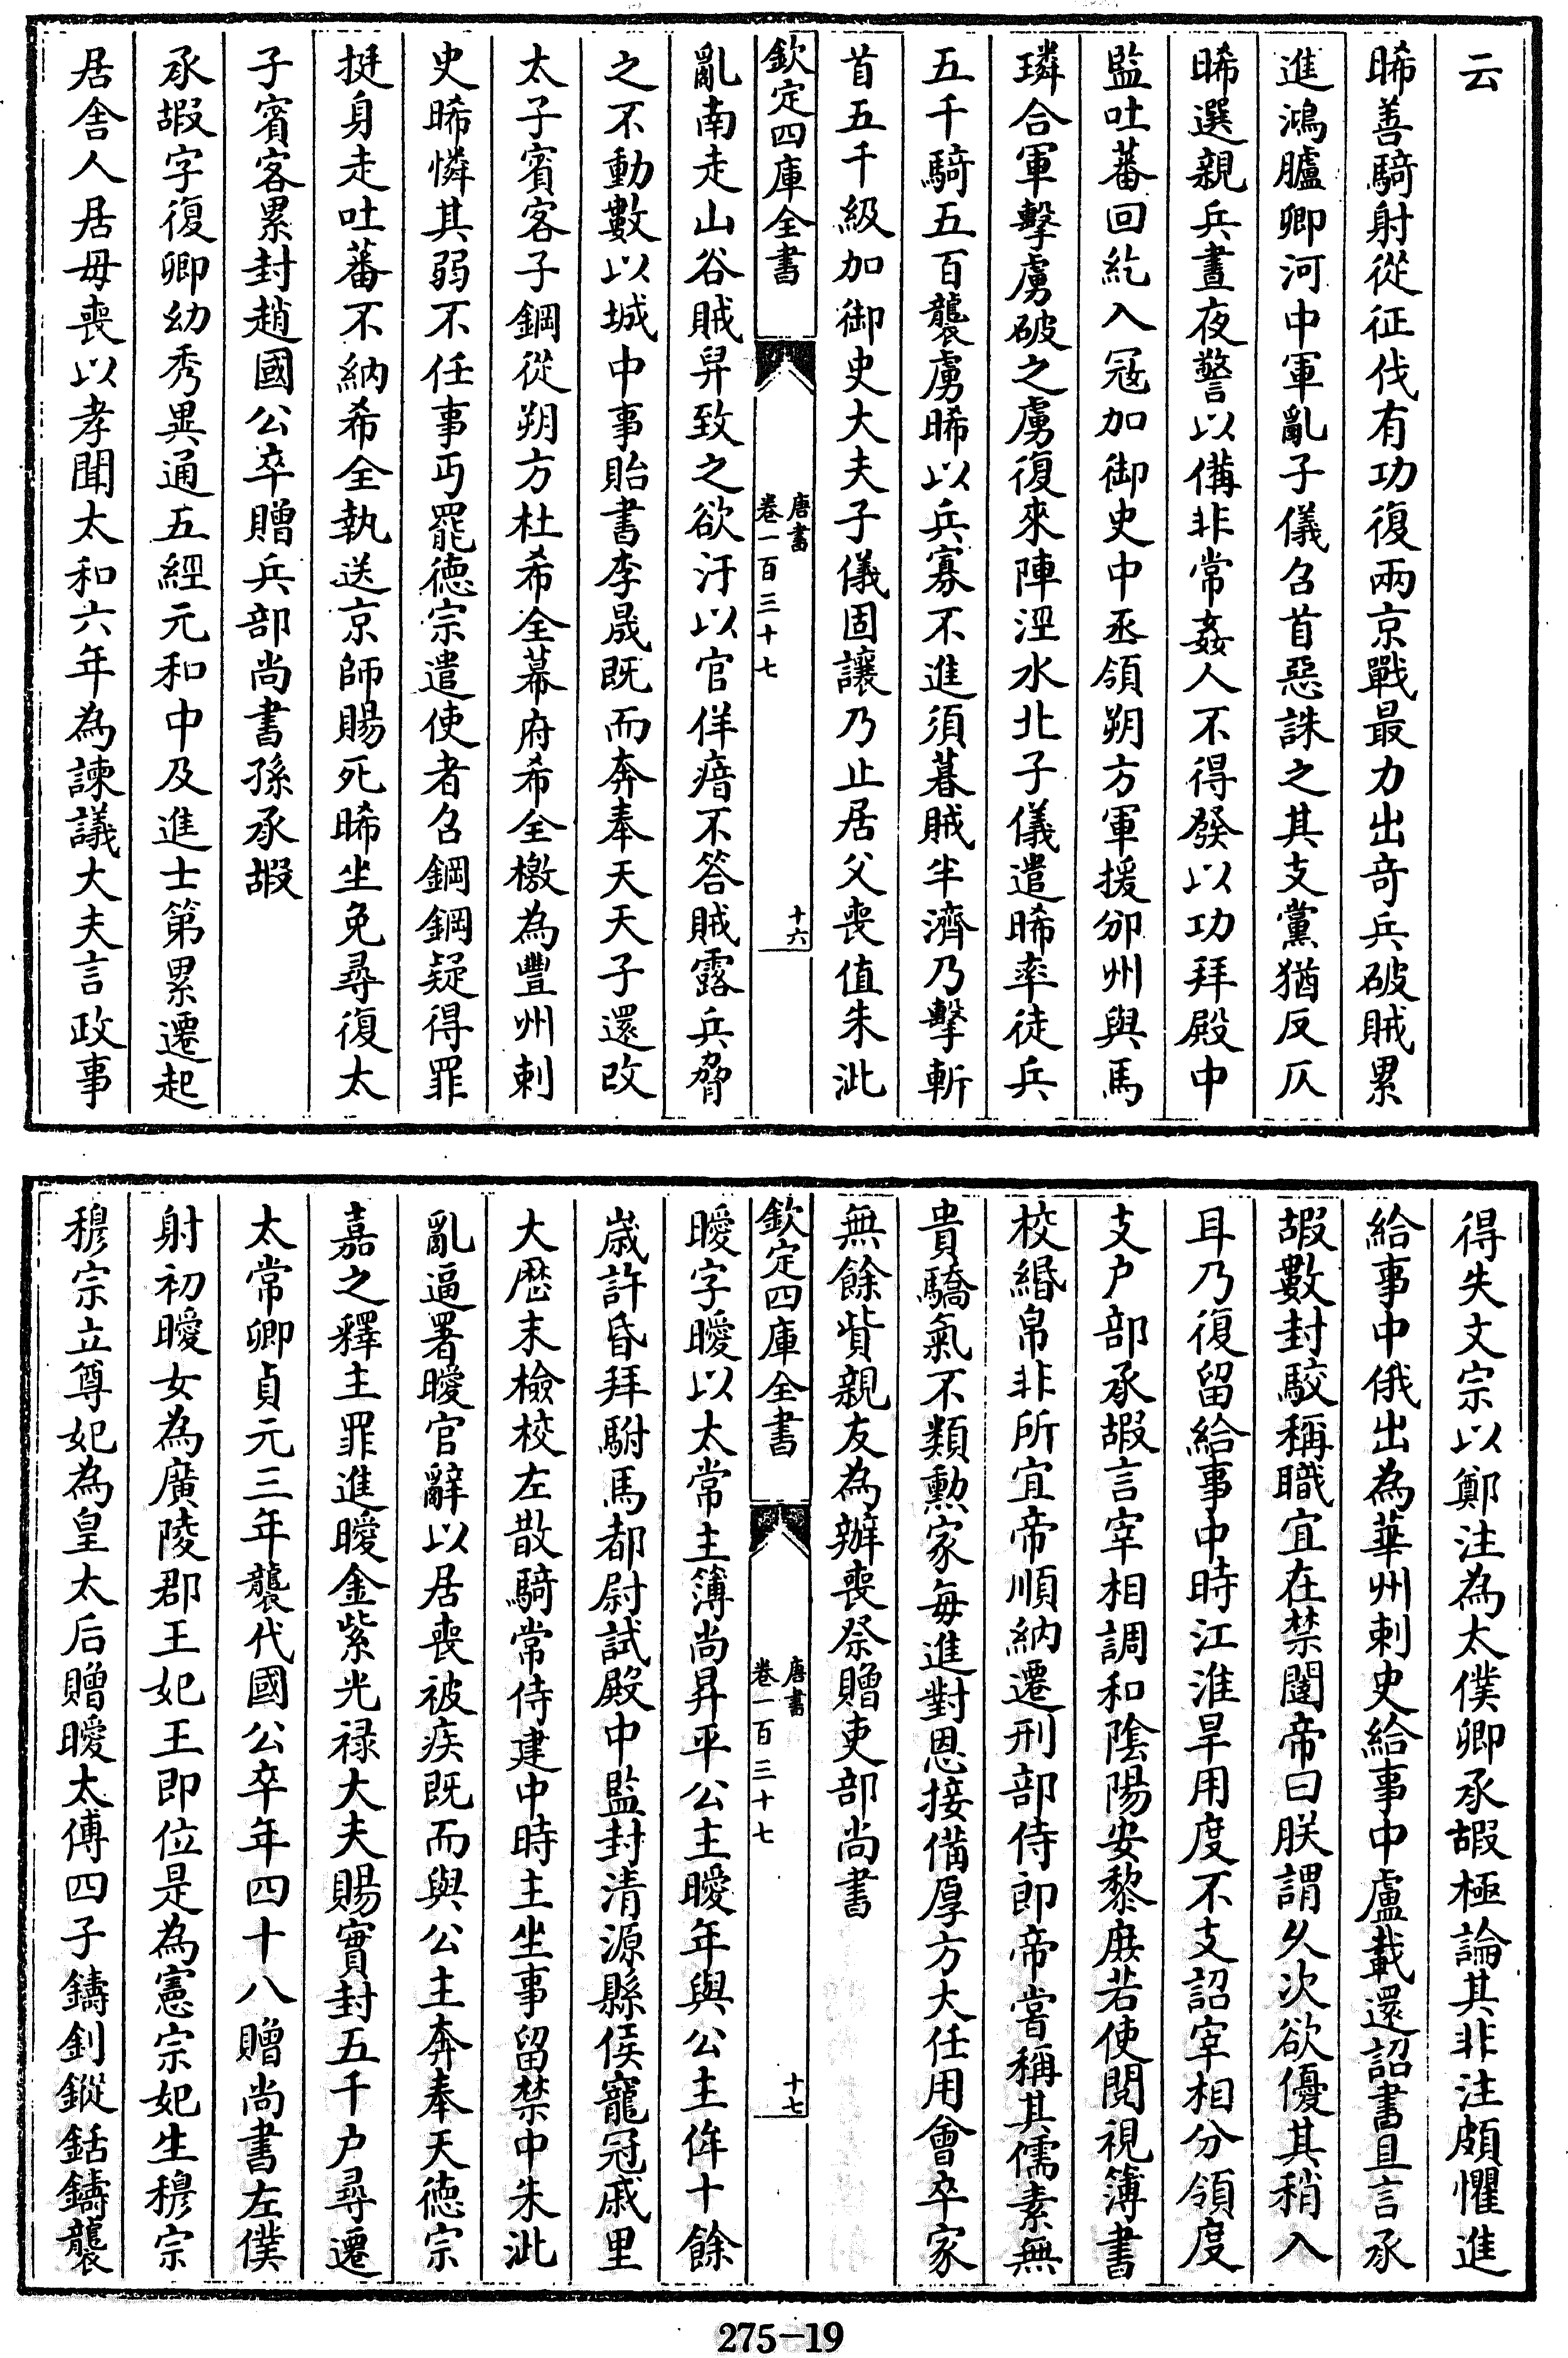 云
晞善騎射從征伐有功復兩京戰最力出奇兵破賊累
進鴻臚卿河中軍亂子儀召首惡誅之其支黨猶反仄
晞選親兵晝夜警以備非常姦人不得發以功拜殿中
監吐蕃回紇入寇加御史中丞領朔方軍援邠州與馬
璘合軍擊虜破之虜復來陣涇水北子儀遣晞率徒兵
五千騎五百襲虜晞以兵寡不進須暮賊半濟乃擊斬
首五千級加御史大夫子儀固讓乃止居父喪值朱泚
欽定四庫全書
唐書
卷一百三十七
十六
亂南走山谷賊舁致之欲汙以官佯瘖不答賊露兵脅
之不動數以城中事貽書李晟既而奔奉天天子還改
太子賓客子鋼從朔方杜希全幕府希全檄為豐州刺
史晞憐其弱不任事丐罷德宗遣使者召鋼鋼疑得罪
挺身走吐蕃不納希全執送京師賜死晞坐免尋復太
子賓客累封趙國公卒贈兵部尚書孫承嘏
承嘏字復卿幼秀異通五經元和中及進士第累遷起
居舍人居毋喪以孝聞太和六年為諫議大夫言政事
得失文宗以鄭注為太僕卿承嘏極論其非注頗懼進
給事中俄出為華州刺史給事中盧載還詔書且言承
嘏數封駮稱職宜在禁闥帝曰朕謂久次欲優其稍入
耳乃復留給事中時江淮旱用度不支詔宰相分領度
支户部承嘏言宰相調和陰陽安黎庶若使閱視簿書
校緡帛非所宜帝順納遷刑部侍郎帝嘗稱其儒素無
貴驕氣不類勲家每進對恩接備厚方大任用會卒家
無餘貲親友為辦喪祭贈吏部尚書
欽定四庫全書
唐書
卷一百三十七
十七
曖字曖以太常主簿尚昇平公主曖年與公主侔十餘
歲許昏拜駙馬都尉試殿中監封清源縣侯寵冠戚里
大厯末檢校左散騎常侍建中時主坐事留禁中朱泚
亂逼署曖官辭以居喪被疾既而與公主奔奉天德宗
嘉之釋主罪進曖金紫光禄大夫賜實封五千户尋遷
太常卿貞元三年襲代國公卒年四十八贈尚書左僕
射初曖女為廣陵郡王妃王即位是為憲宗妃生穆宗
穆宗立尊妃為皇太后贈曖太傅四子鑄釗鏦銛鑄襲
275-19